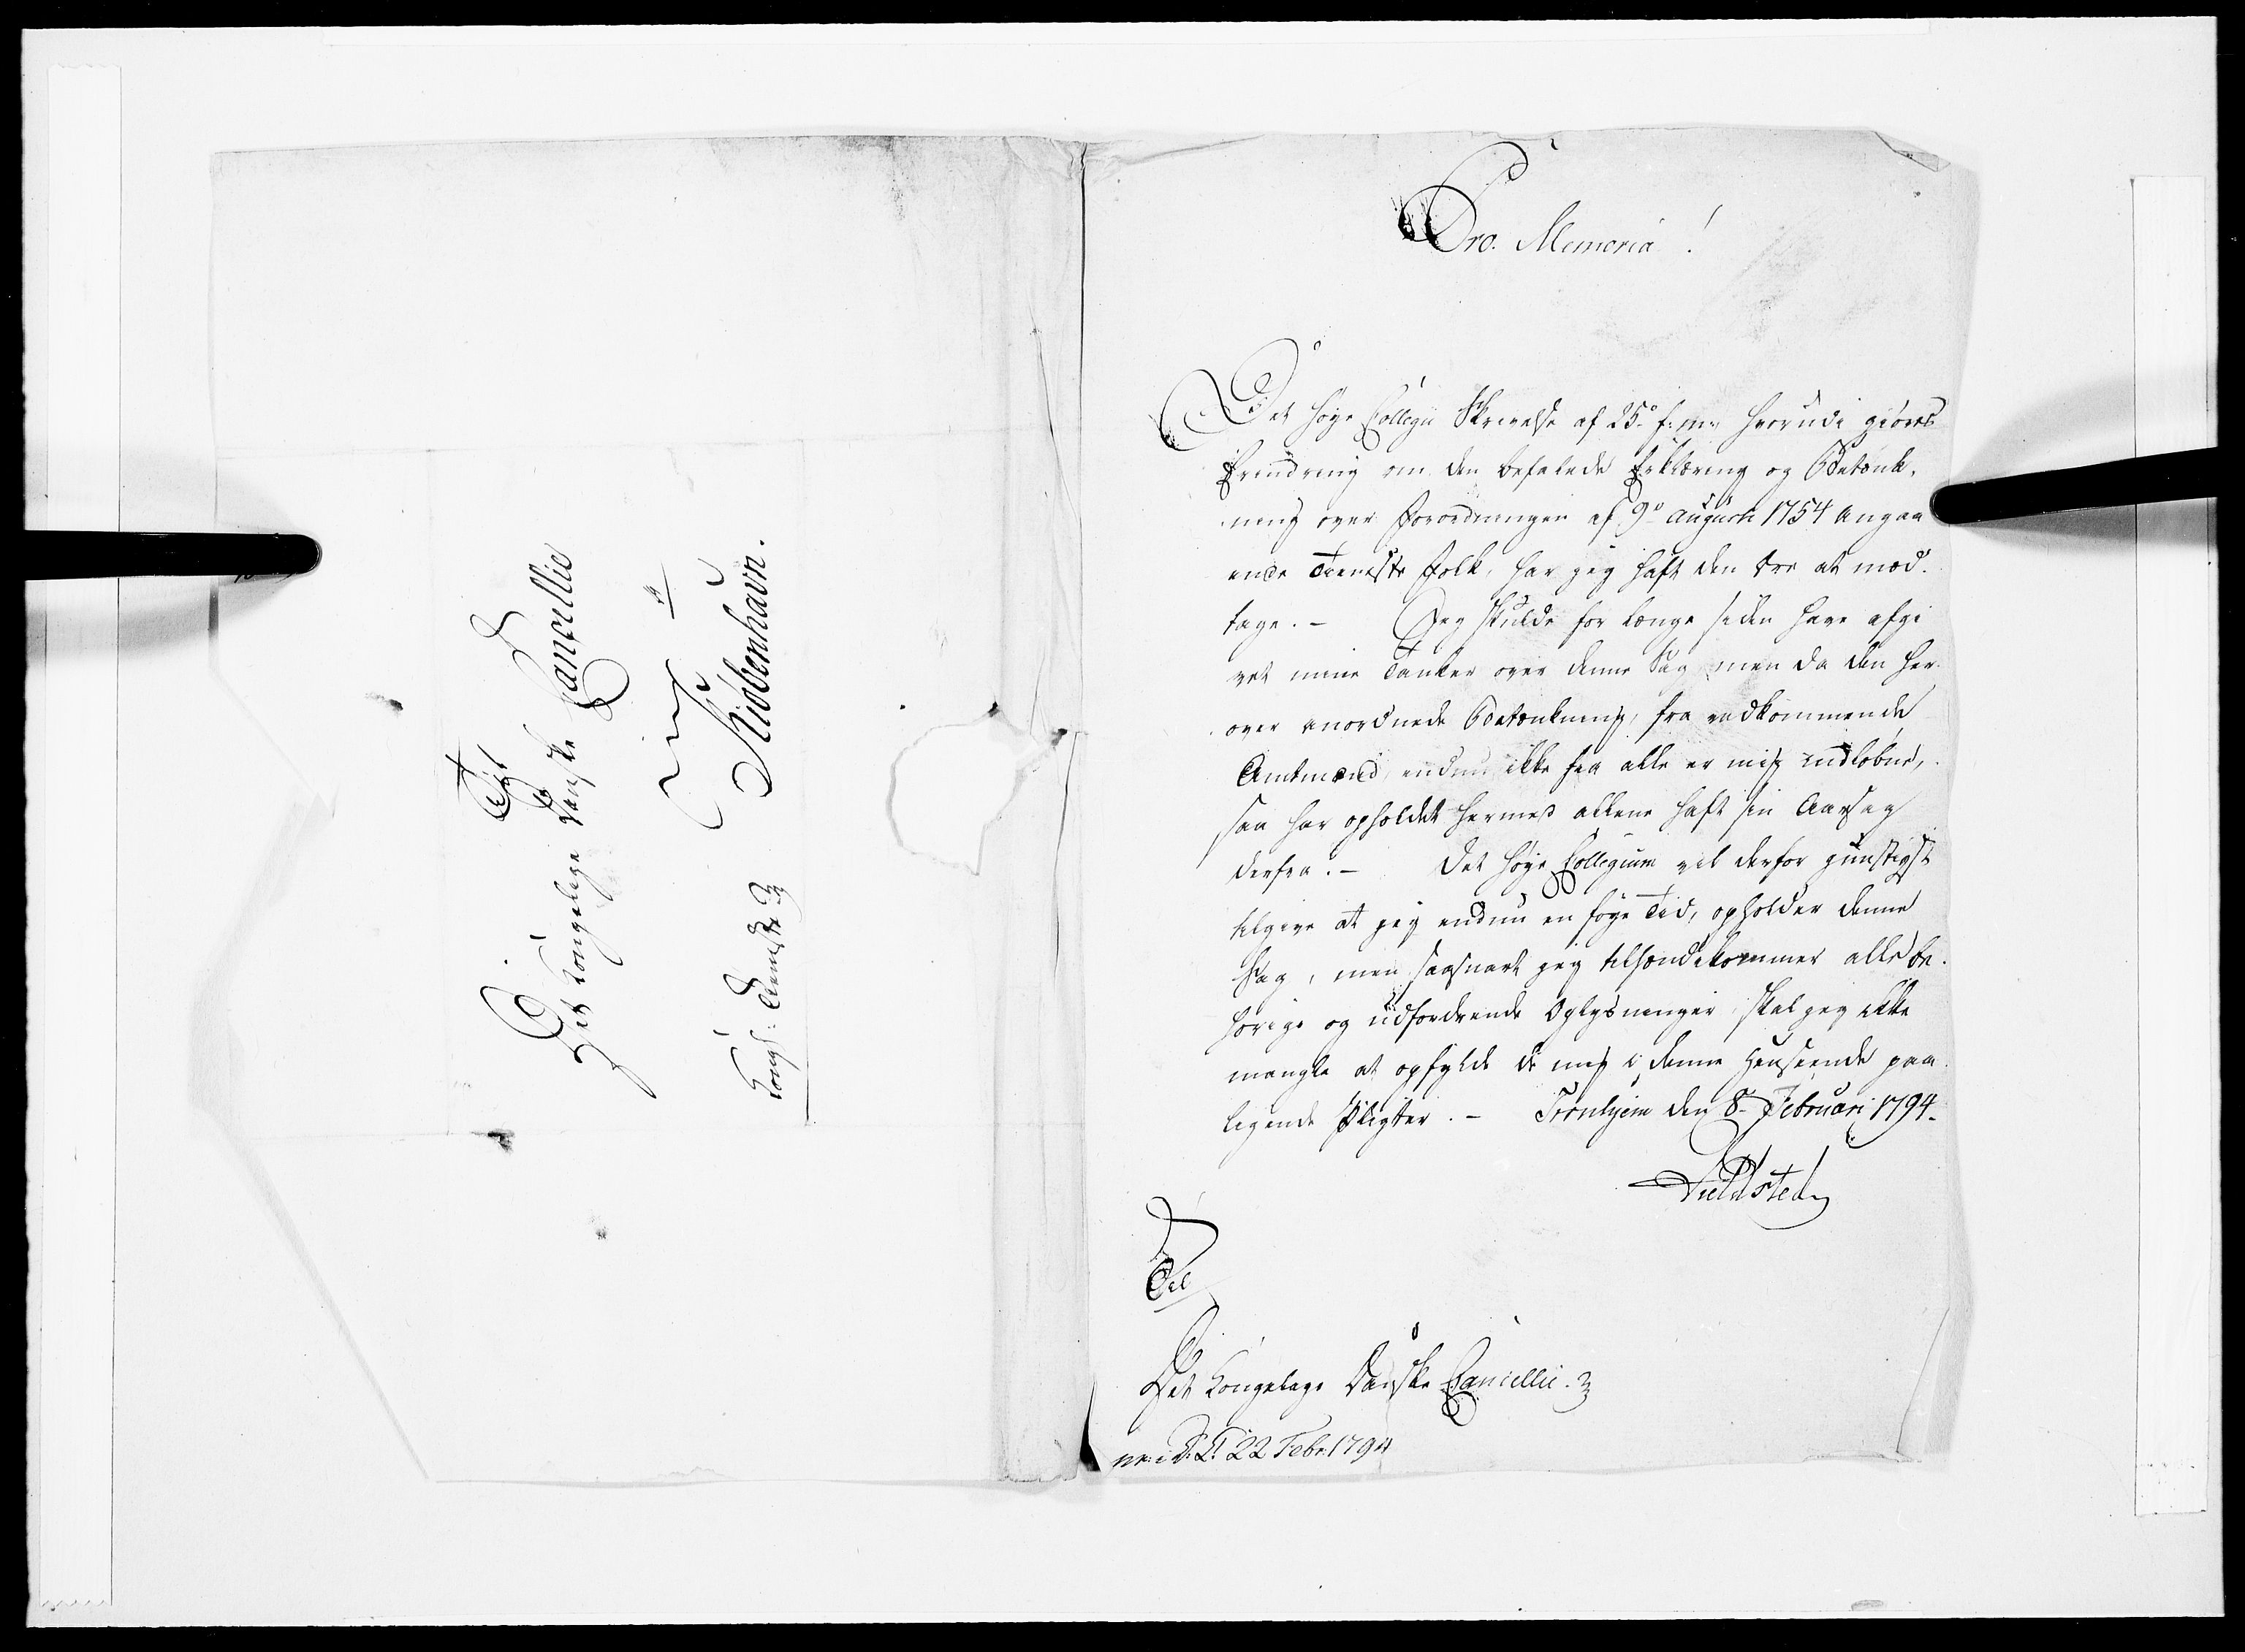 Til
Det Kongelige Danske Cancellie
i
Kiøbenhavn.
Kongl: Tieneste
Pro. Memoria!
Det høye Collegii Skrivelse af 25º f: m: hvorudi giøres
Erindring om den befalede Erklæring og Betænk-
ning over Forordningen af 9º Augusti 1754 angaa
ende Tieneste Folk, har jeg haft den Ære at mod-
tage. - Jeg skulde for længe siden have afgi
vet mine Tanker over denne Sag, men da den her-
over anordnede Betænkning, fra vedkommende
Amtmænd, endnu ikke fra alle er mig indløbne,
saa har opholdet hermed allene haft sin Aarsag
derfra. - Det høye Collegium vil derfor gunstigst
tilgive at jeg endnu en føye Tid, opholder denne
Sag, men saasnart jeg tilhændekommer alle be-
hørige og udfordrende Oplysninger, skal jeg ikke
mangle at opfylde de mig i denne Henseende paa-
ligende Pligter. - Tronhjem den 8. Februari 1794.
Til
Det Kongelige Danske Cancellie.
22 Febr: 1794